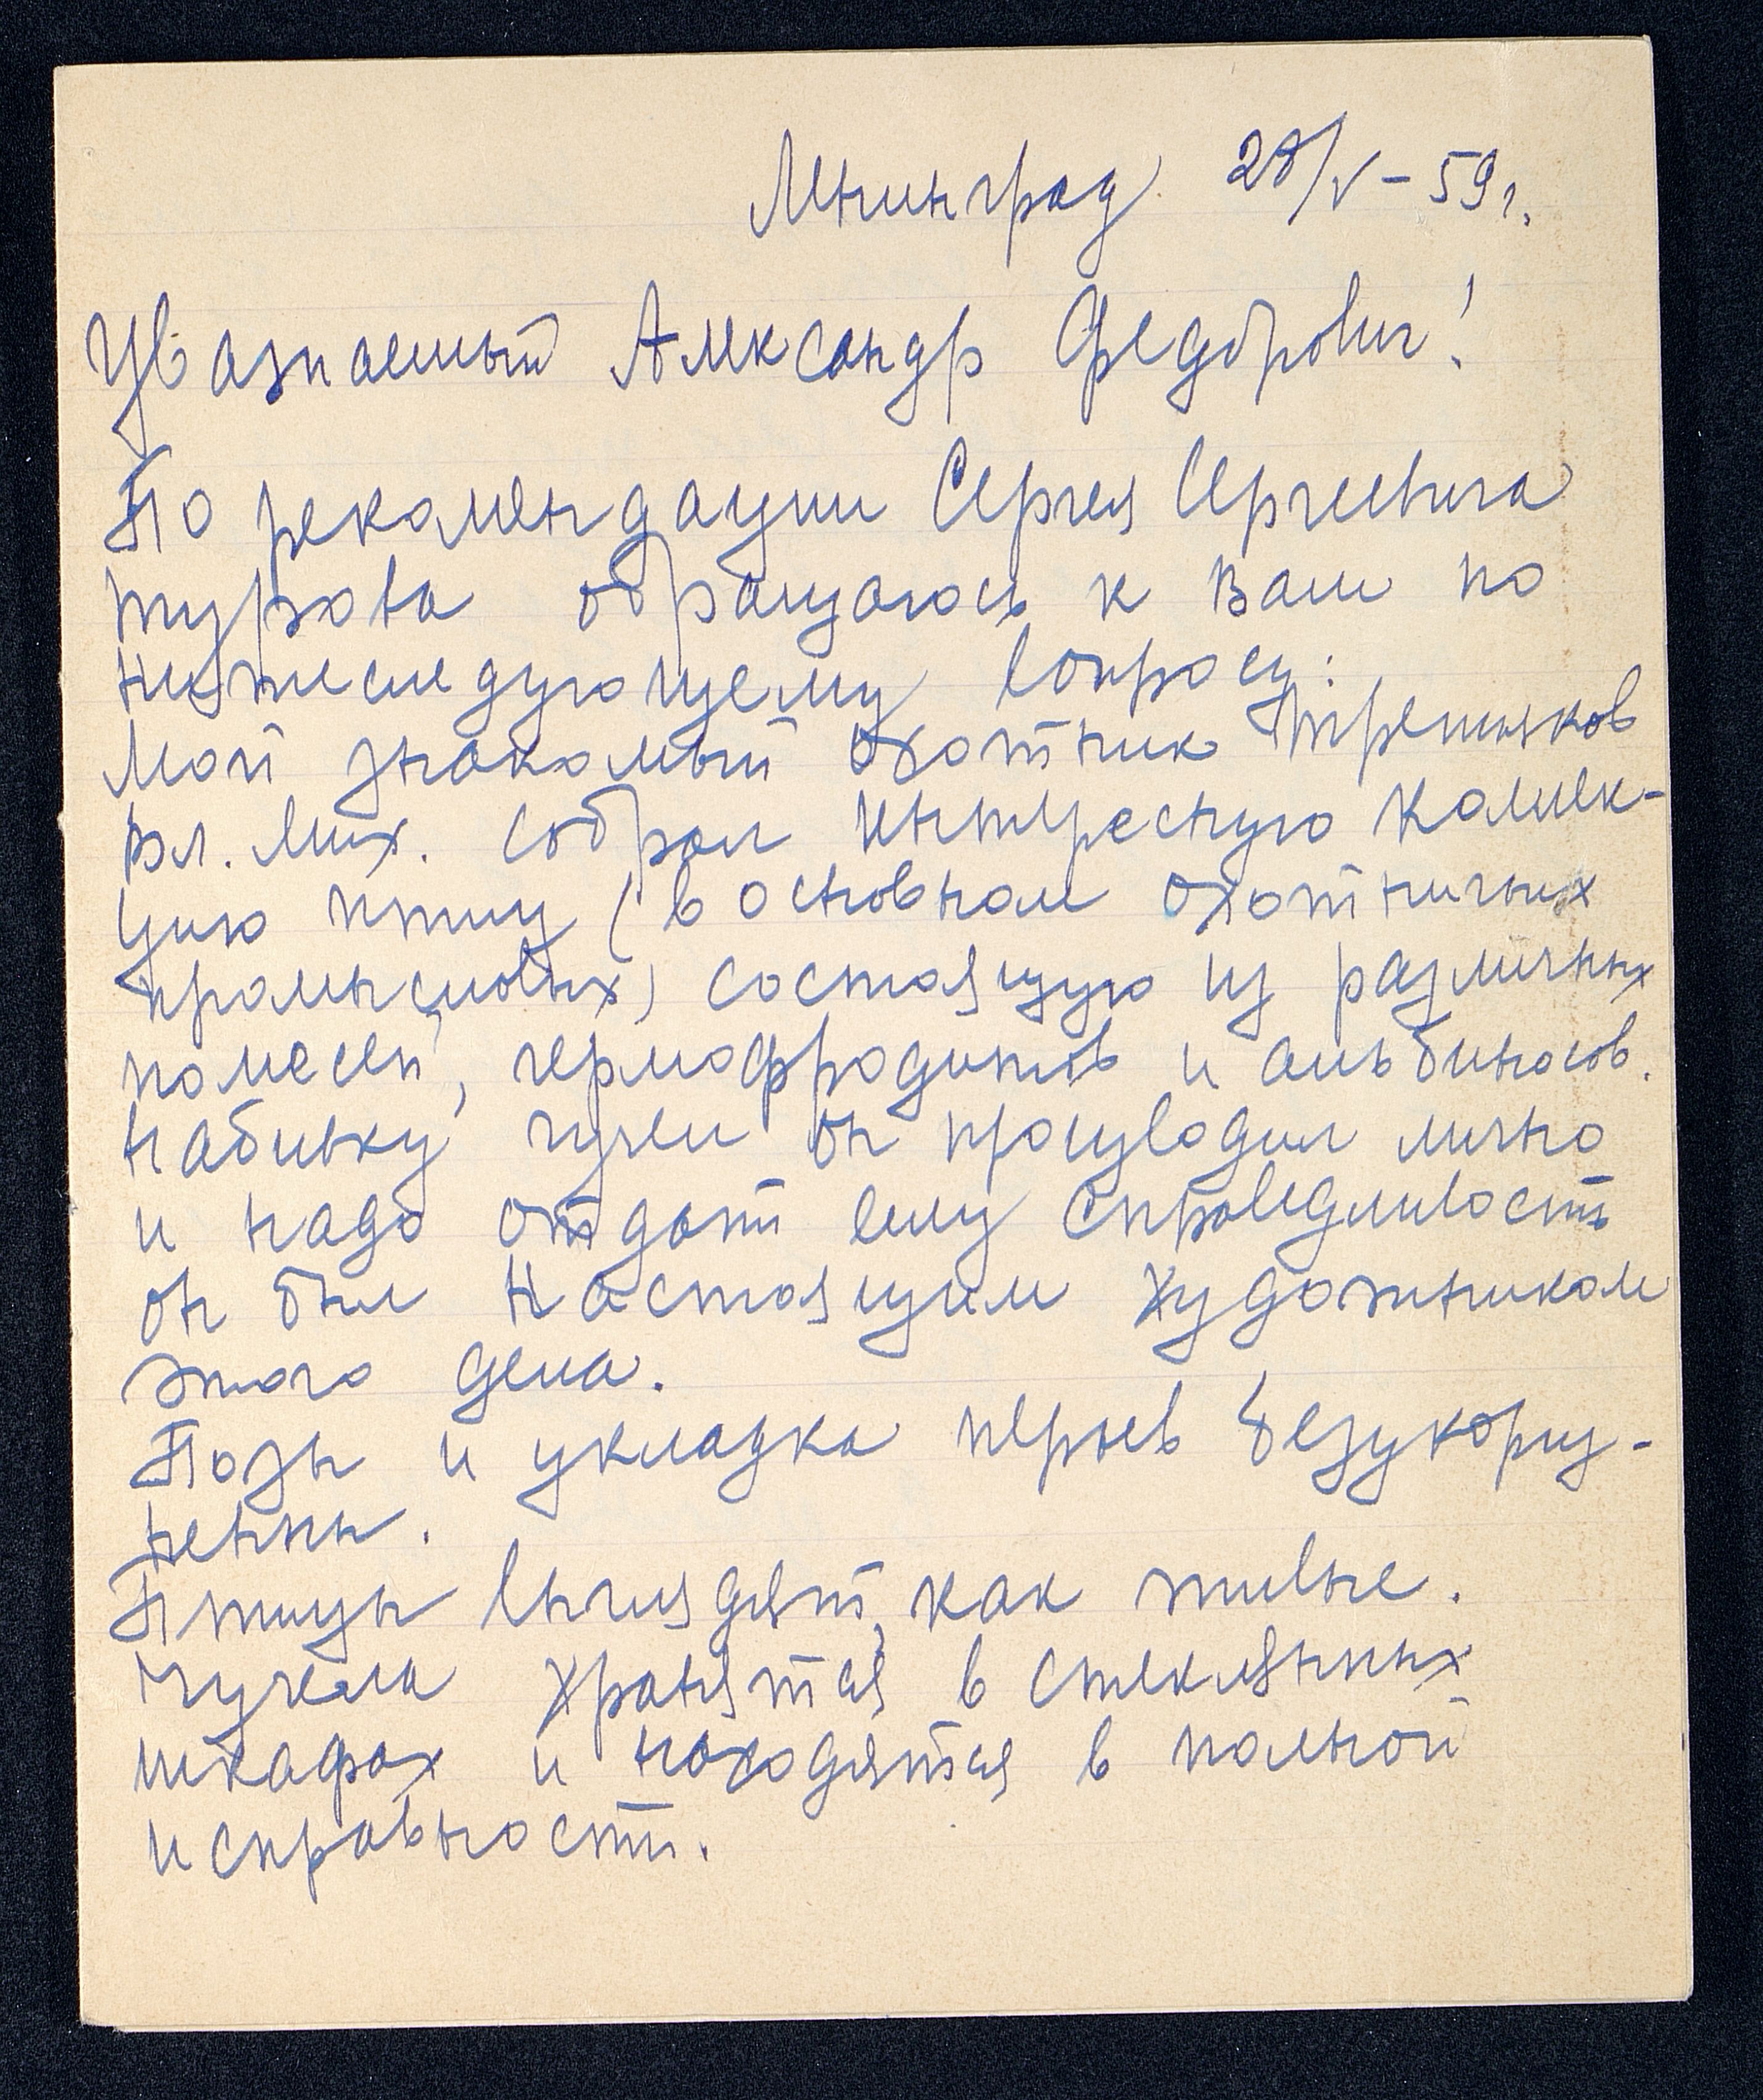 Ленинград. 28/V – 59 г.
Уважаемый Александр Федорович!
По рекомендации Сергея Сергеевича
Турова обращаюсь к Вам по
нижеследующему вопросу:
Мой знакомый охотник
Вл. Мих. собрал интересную коллек-
цию птиц (в основном охотничьих
промысловых) состоящую из различных
помесей, гермофродитов и альбиносов.
Набивку чучел он производил лично
и надо отдать ему справедливость
он был настоящим художником
этого дела.
Позы и укладка перьев безукориз-
ненны.
Птицы выглядят, как живые.
Чучела хранятся в стеклянных
шкафах и находятся в полной
исправности.